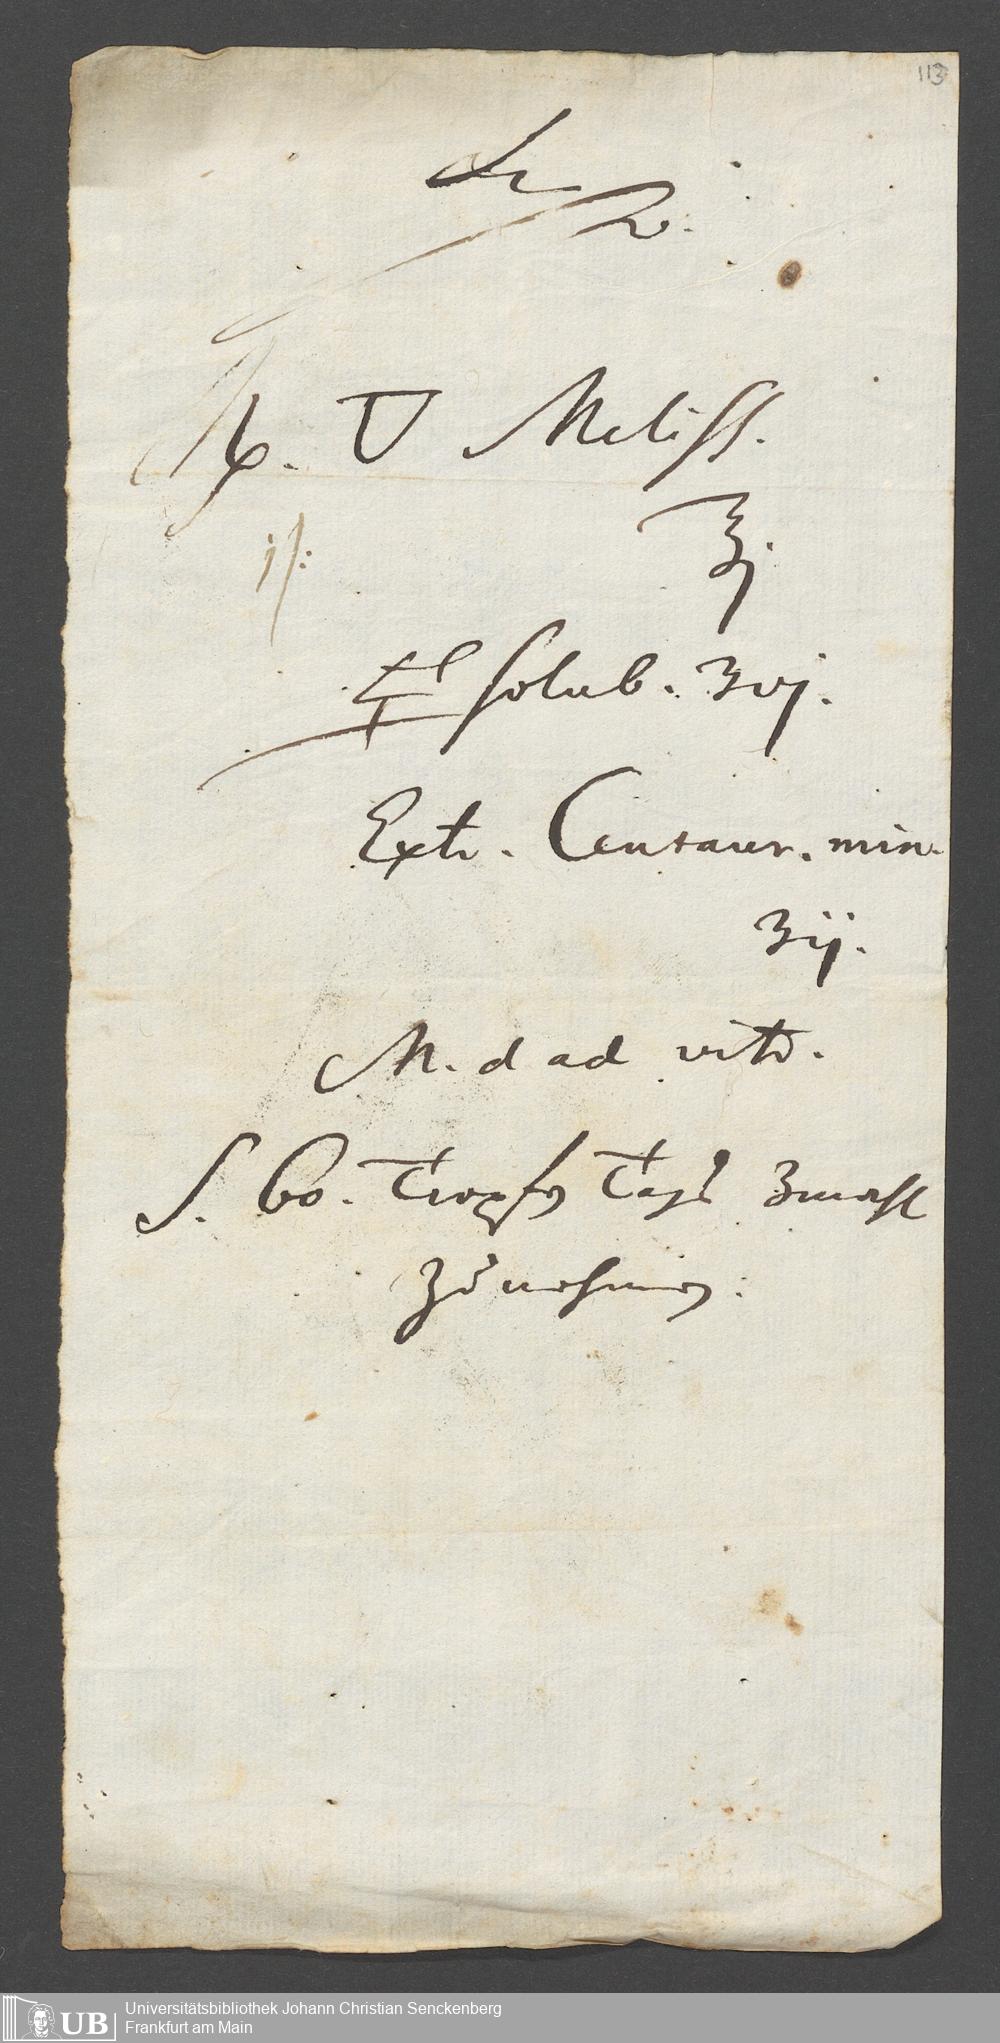 113
℞. ▽ Meliss.
℥j.
solub. ʒvj.
Extr. Centaur. min.
ʒij.
M. d ad vitr.
S. 60. Tropfen Tags 3mahl
zu nehmen.
UB Universitätsbibliothek Johann Christian Senckenberg
Frankfurt am Main